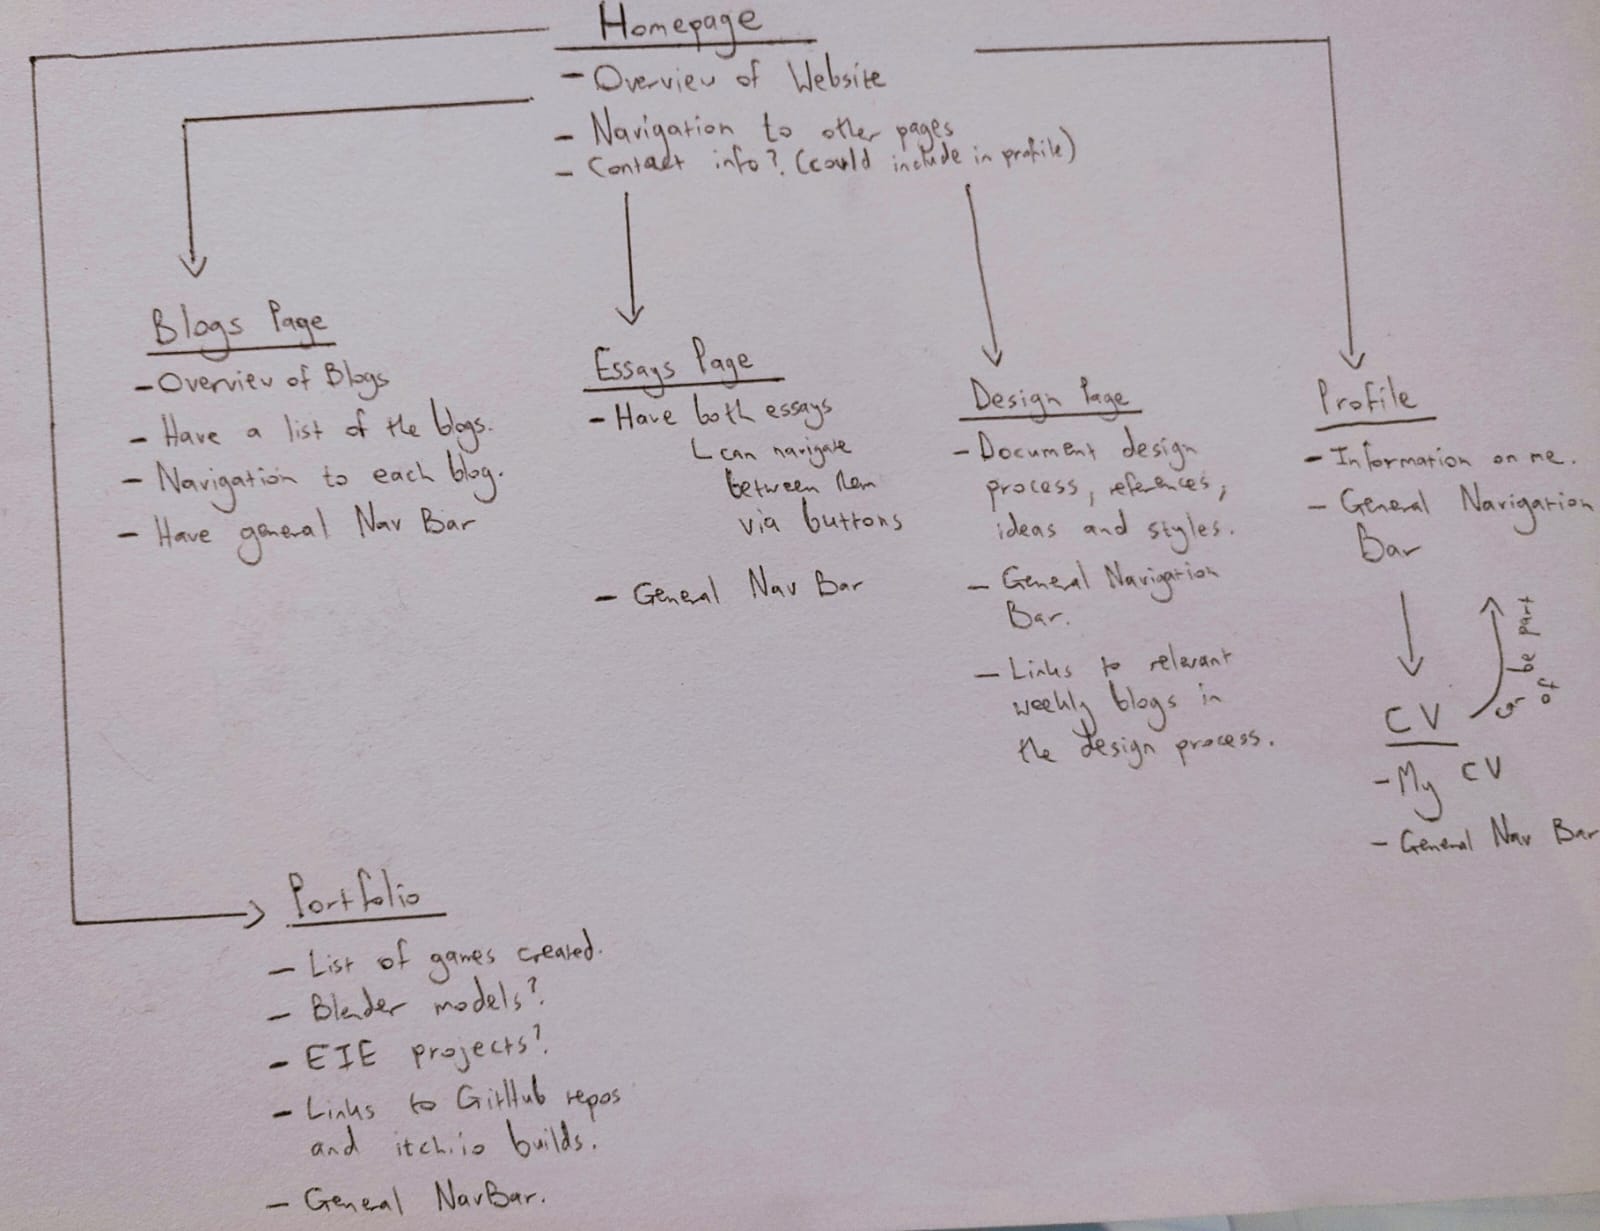 Homepage
- Overview of Website
- Navigation to other pages
- Contact info? (could include in profile)
Blogs Page
- Overview of Blogs
- Have a list of the blogs.
- Navigation to each blog.
- Have general Nav Bar
Essays Page
- Have both essays
can navigate
between them
via buttons
- General Nav Bar
Design Page
- Document design
process, references,
ideas and styles.
- General Navigation
Bar.
- Links to relevant
weekly blogs in
the design process.
Profile
- Information on me.
- General Navigation
Bar
CV
- My CV
- General Nav Bar
can be part
of
Portfolio
- List of games created.
- Blender models?
- EIE projects?
- Links to GitHub repos
and itch.io builds.
- General NavBar.